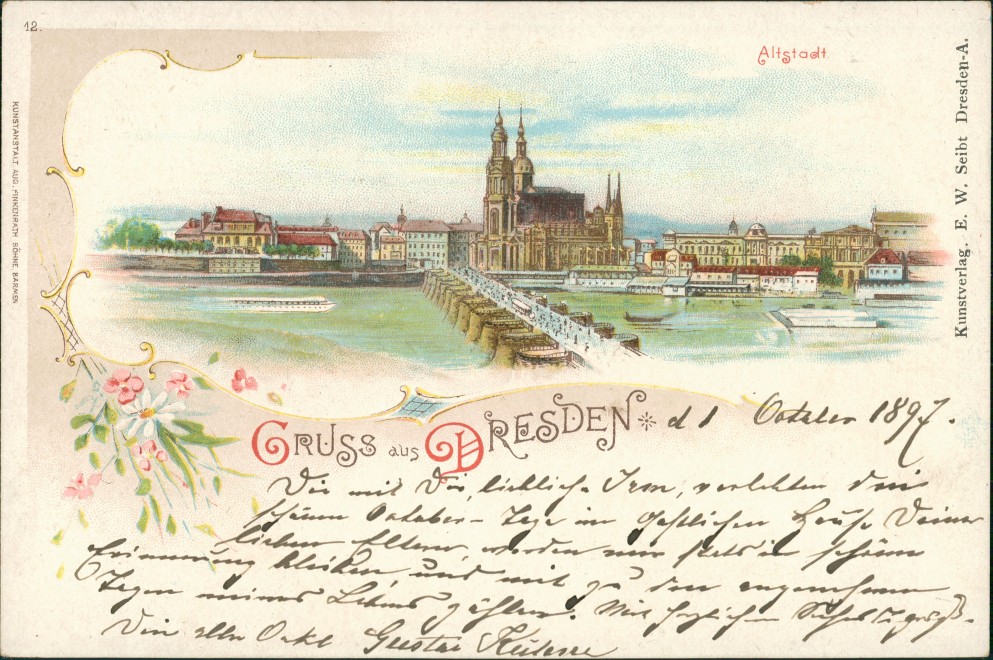 12.
Altstadt
KUNSTANSTALT AUG. FINKENRATH SÖHNE, BARMEN
Kunstverlag, E. W. Seibt Dresden-A.
GRUSS aus DRESDEN * d 1 October 1897.
Die mit Dir, lieblich, verlebten drei
schönen October-Tage im gastlichen Hause Deiner
lieben Eltern, werden mir stets in schöner
Erinnerung bleiben, und mit zu den angenehmen
Tagen meines Lebens zählen. Mit herzlichem
Dein alter Onkel Gustav